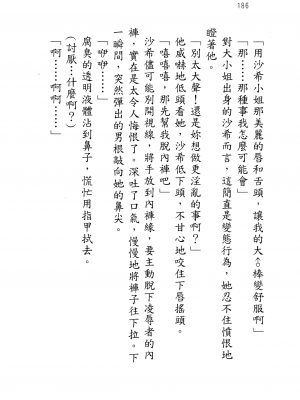 186
「用沙希小姐那美麗的唇和舌頭，讓我的大○棒變舒服啊」
「那……那種事我怎麼可能會」
對大小姐出身的沙希而言，這簡直是變態行為，她忍不住憤恨地
瞪著他。
「別太大聲！還是妳想做更淫亂的事啊？」
他威赫地低頭看她，沙希低下頭，不甘心地咬住下唇搖頭。
「嘻嘻嘻，那先幫我脫內褲吧」
沙希儘可能別開視線，將手放到內褲線，要主動脫下凌辱者的內
褲，實在是太令人悔恨了。深吐了口氣，慢慢地將褲子往下拉。下
一瞬間，突然彈出的男根敲向她的鼻尖。
「咿咿……」
（討厭…什麼啊？）
腐臭的透明液體沾到鼻子，慌忙用指甲拭去。
「啊……啊啊……」